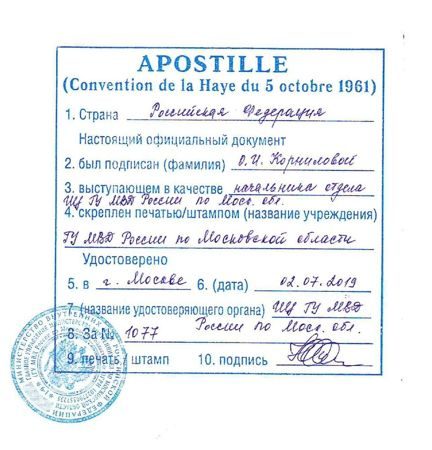 APOSTILLE
(Convention de la Haye du 5 octobre 1961)
1. Страна Российская Федерация
Настоящий официальный документ
2. был подписан (фамилия) О.И. Корниловой
3. выступающем в качестве начальника отдела
ИЦ ГУ МВД России по Моск. обл.
4. скреплен печатью/штампом (название учреждения)
ГУ МВД России по Московской области
Удостоверено
5. в г. Москве 6. (дата) 02.07.2019
7. (название удостоверяющего органа) ИЦ ГУ МВД
России по Моск. обл.
8. За № 1077
9. печать / штамп 10. подпись